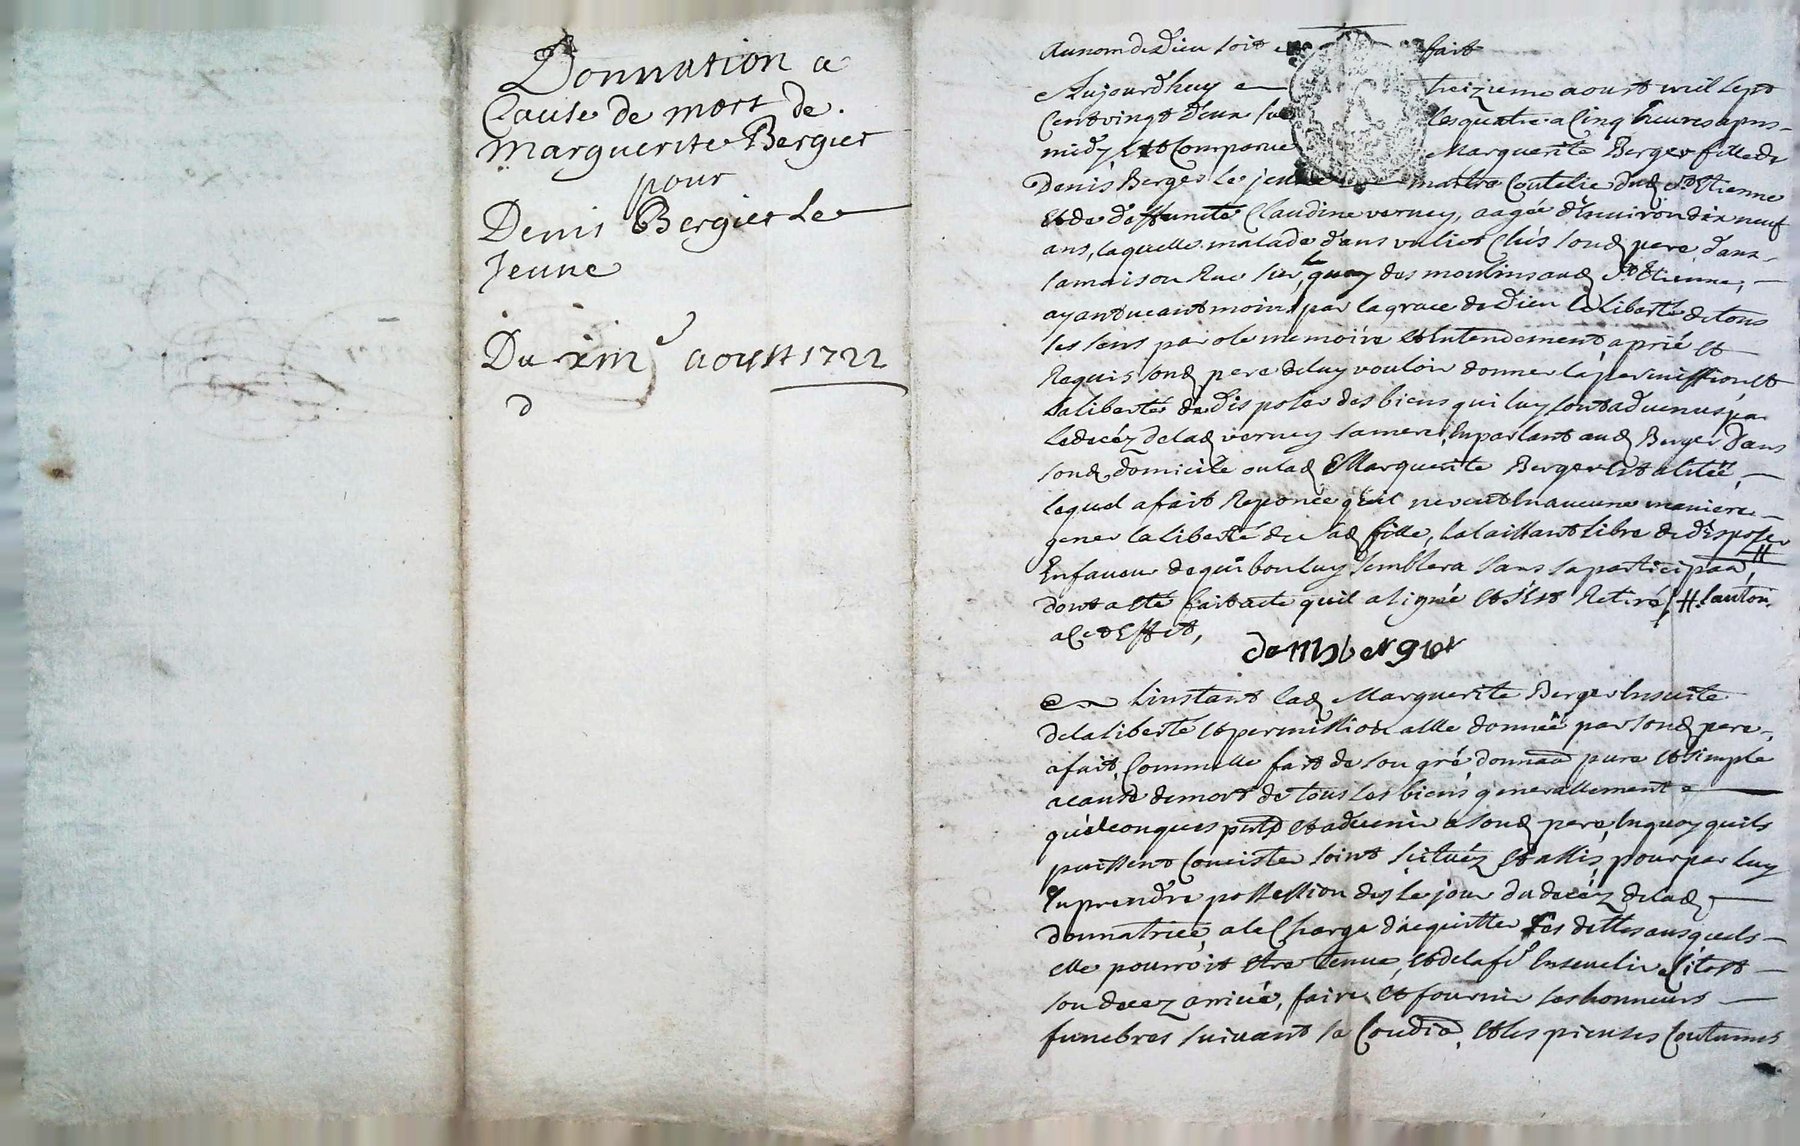 Donnation a
Cause de mort de
Marguerite Bergier
pour
Denis Bergier Le
Jeune
Du xiii^e aoust 1722
D
Au nom de Dieu soit fait
Aujourdhuy treizieme aoust mil sept
Cent vingt deux sur les quatre a Cinq heures apres
midy, Est Comparue Marguerite Berger fille de
Denis Berger le jeune maitre Coutelie dud St Etienne
Et de deffunte Claudine verney, aagée d'Environ dix neuf
ans, laquelle malade dans un lict Chés sond pere dans
sa maison Rue sur le quay des moulins aud St Etienne,
ayant neantmoins par la grace de Dieu la liberté de tous
ses sens parole memoire Et Entendement a prié Et
Requis sond pere de luy vouloir donner la permission Et
La liberté de disposer des biens qui luy sont advenus par
le decéz de lad verney sa mere, En parlant aud Berger dans
sond domicile ou lad Marguerite Berger Est alitée,
lequel a fait Reponce qu'il ne veut En aucune maniere
gener la liberté de sad fille, la laissant libre de disposer
En faveur de qui bon luy semblera sans sa participaon #
dont a Eté fait acte quil a signé Et s'Est Retiré, # l'auton
a Cet Effet,
denis bergier
A Linstant lad Marguerite Berger Ensuite
de la liberté Et permission a Elle donnée par sond pere,
a fait, Comme Elle fait de son gré donnaon pure Et simple
a cause de mort de tous ses biens generallement
quelconques pnts Et advenir a sond pere, En quoy quils
puissent Concister soint scituéz Et assis, pour par luy
En prendre possession dés le jour du decéz de lad
donnatrice, a la Charge d'acquitter ses dettes ausquels
elle pourroit Etre tenue, Et de la fe Ensevelir Sitost
son decez arrivé, faire Et fournir ses honneurs
funebres suivant sa Condion, Et les pieuses Coutumes